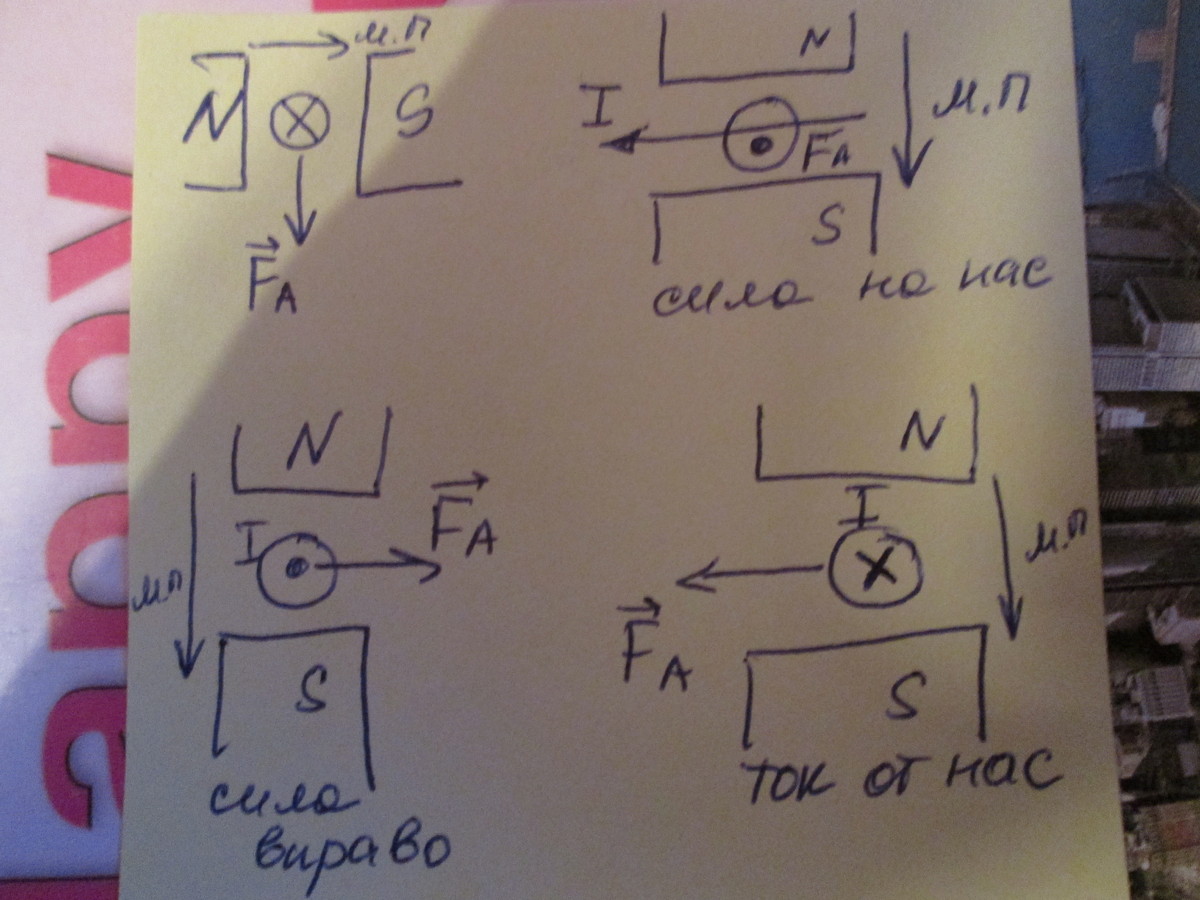 м.п
N
S
F_A
N
I
м.п
F_A
S
сила на нас
N
F_A
I
мп
S
сила
вправо
N
I
м.п
F_A
S
ток от нас
appy